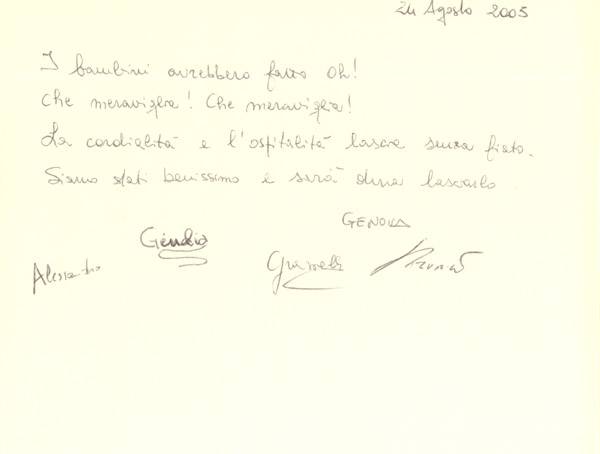 24 Agosto 2005
I bambini avrebbero fatto Oh!
Che meraviglia! Che meraviglia!
La cordialità e l'ospitalità lascia senza fiato.
Siamo stati benissimo e sarà dura lasciarlo
GENOVA
Alessandro